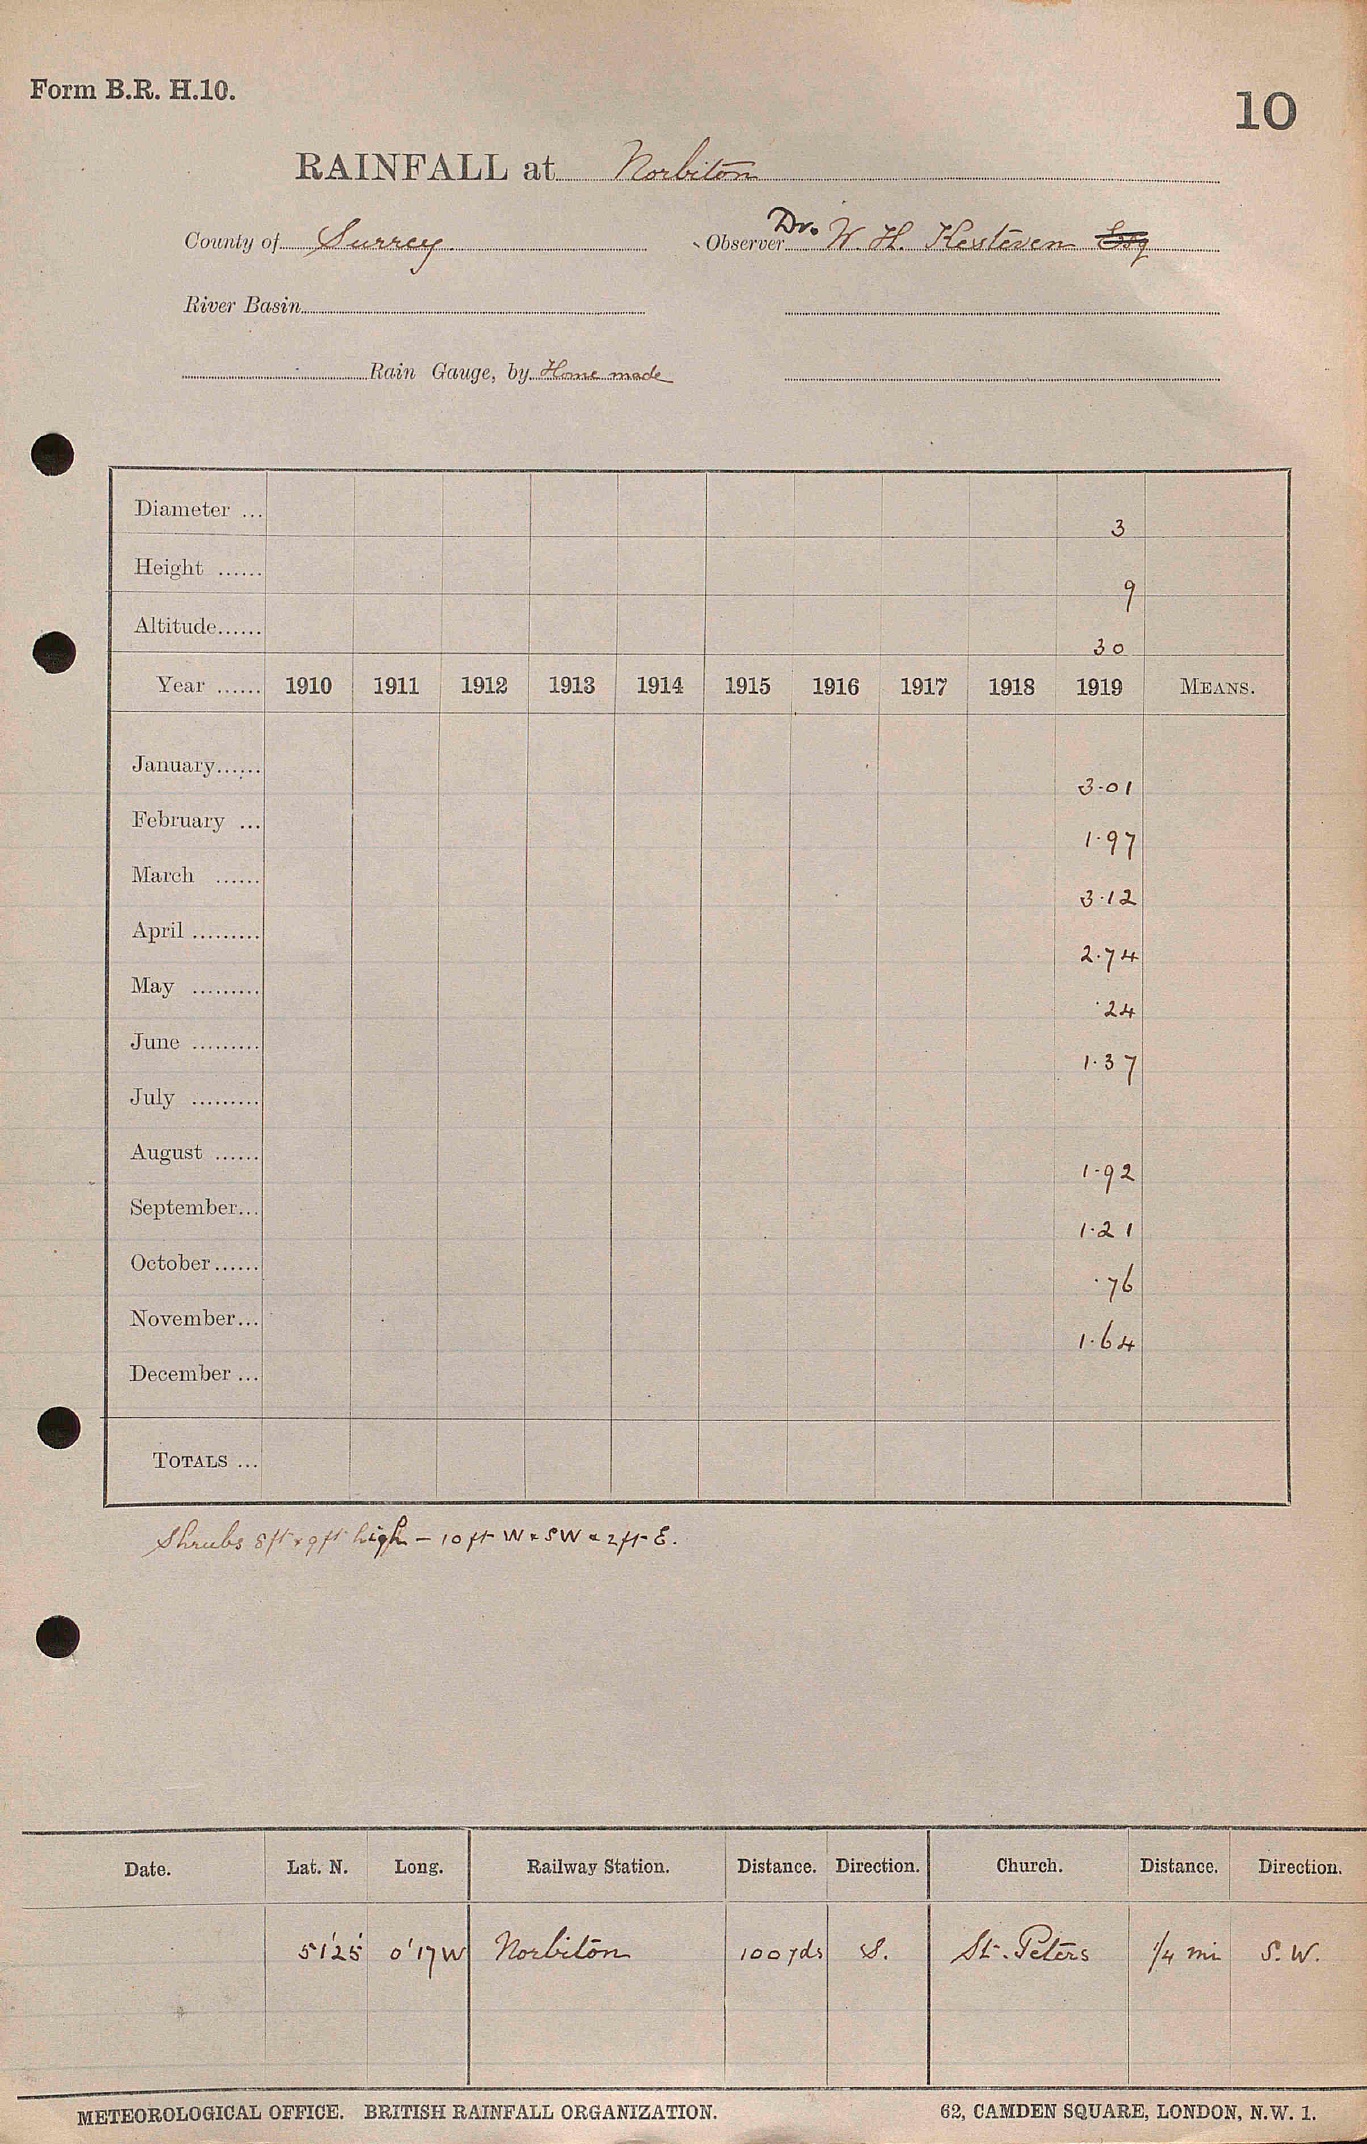 Form B.R. H.10.
10
RAINFALL at Norbiton
County of Surrey. Observer Dr. W. H. Kesteven Esq
River Basin
Rain Gauge, by Home made
Diameter ... 3
Height ...... 9
Altitude...... 30
Year ...... 1910 1911 1912 1913 1914 1915 1916 1917 1918 1919 MEANS.
January...... 3.01
February ... 1.97
March ...... 3.12
April ......... 2.74
May ......... .24
June ......... 1.37
July .........
August ...... 1.92
September... 1.21
October...... .76
November... 1.64
December ...
TOTALS ...
Shrubs 8ft × 9ft high – 10 ft W & SW & 2 ft E.
Date. Lat. N. Long. Railway Station. Distance. Direction. Church. Distance. Direction.
51˙25 0˙17W Norbiton 100 yds S. St. Peters 1/4 mi S.W.
METEOROLOGICAL OFFICE. BRITISH RAINFALL ORGANIZATION. 62, CAMDEN SQUARE, LONDON, N.W. 1.